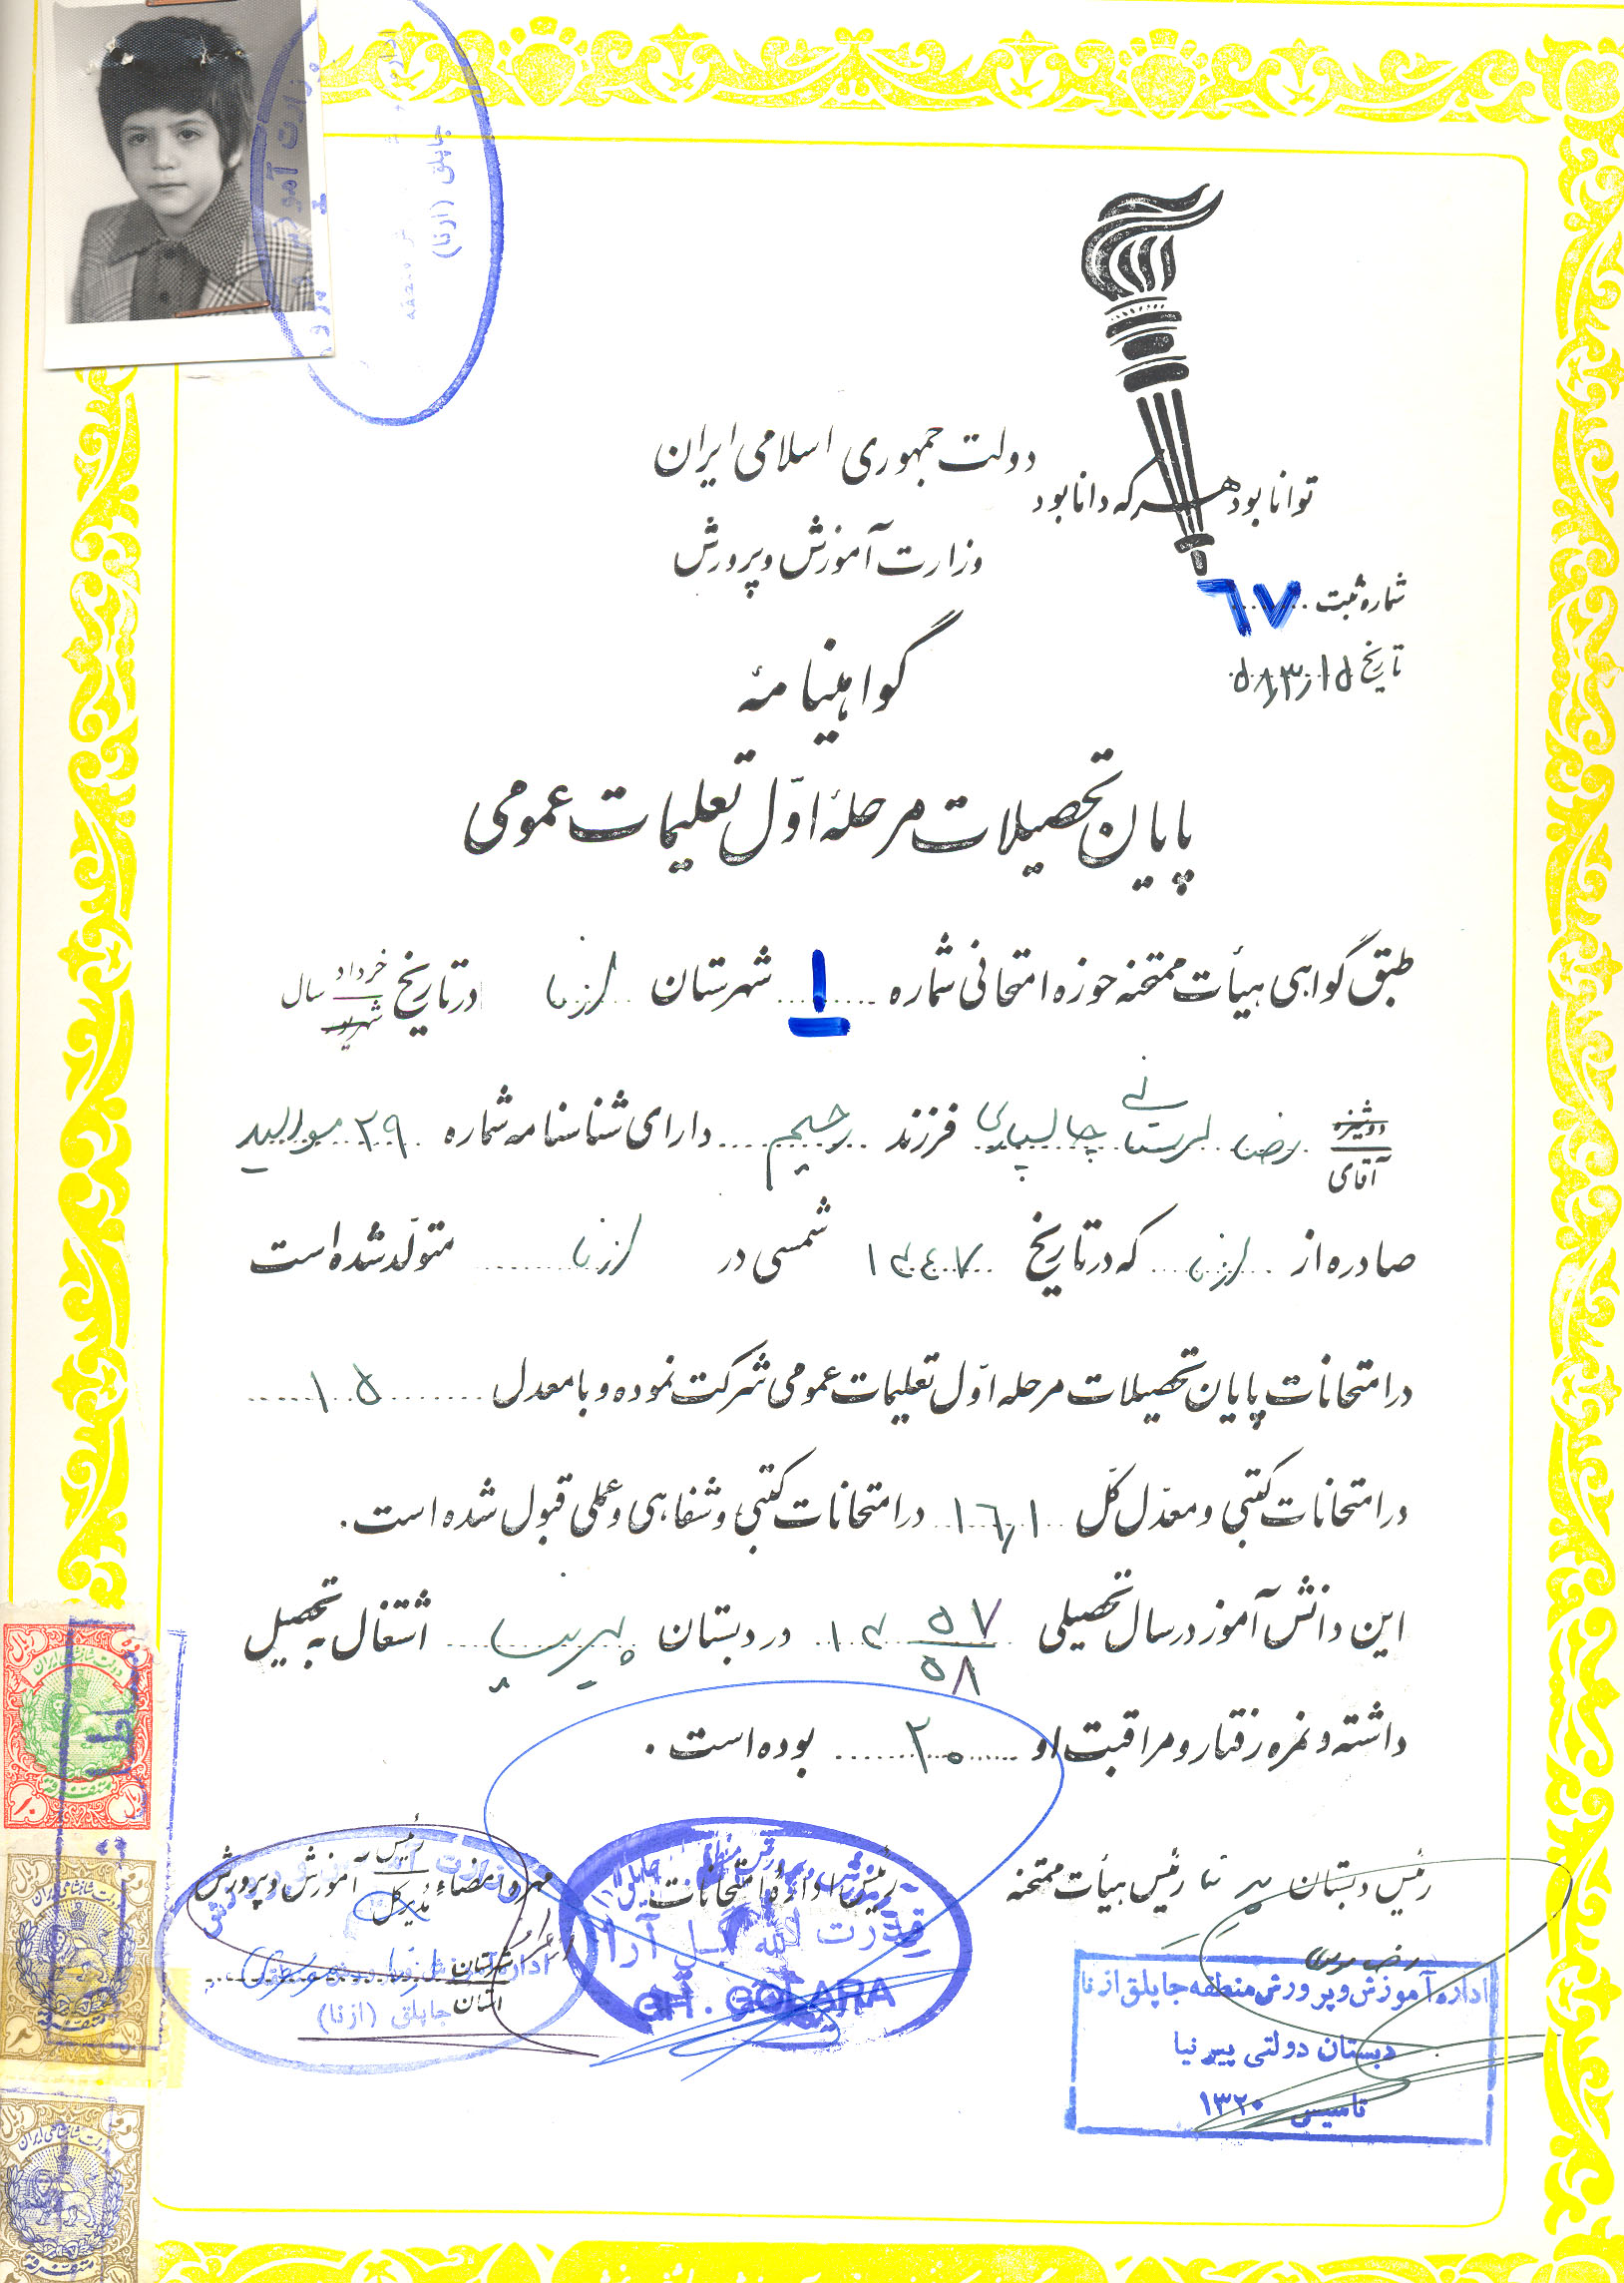 دولت جمهوری اسلامی ایران
توانا بود هر که دانا بود
وزارت آموزش و پرورش
شماره ثبت ٦٧
تاریخ ٥٨٫٣٫١٥
گواهینامهٔ
پایان تحصیلات مرحلهٔ اوّل تعلیمات عمومی
طبق گواهی هیأت ممتحنه حوزه امتحانی شماره ١ شهرستان ازنا در تاریخ خرداد شهریور سال
دوشیزه آقای رضا لرستانی چالسپاری فرزند رحیم دارای شناسنامه شماره ٢٩ موالید
صادره از ازنا که در تاریخ ١٣٤٧ شمسی در ازنا متولّد شده است
در امتحانات پایان تحصیلات مرحله اوّل تعلیمات عمومی شرکت نموده و با معدل ١٥
در امتحانات کتبی و معدّل کلّ ١٦٫١ در امتحانات کتبی و شفاهی و عملی قبول شده است.
این دانش آموز در سال تحصیلی ١٣٥٧ ٥٨ در دبستان پیرنیا اشتغال به تحصیل
داشته و نمره رفتار و مراقبت او ٢٠ بوده است.
رئیس دبستان پیرنیا رئیس هیأت ممتحنه
رئیس اداره امتحانات
مهر و امضاء رئیس مدیر کل آموزش و پرورش
شهرستان
استان
قدرت الله گل آرا
GH. GOLARA
اداره آموزش و پرورش منطقه جاپلق ازنا
دبستان دولتی پیرنیا
تاسیس ۱۳۲۰
جاپلق (ازنا)
وزارت آموزش و پرورش
جاپلق (ازنا)
دولت شاهنشاهی ایران
متفرقه
دولت شاهنشاهی ایران
متفرقه
دولت شاهنشاهی ایران
متفرقه